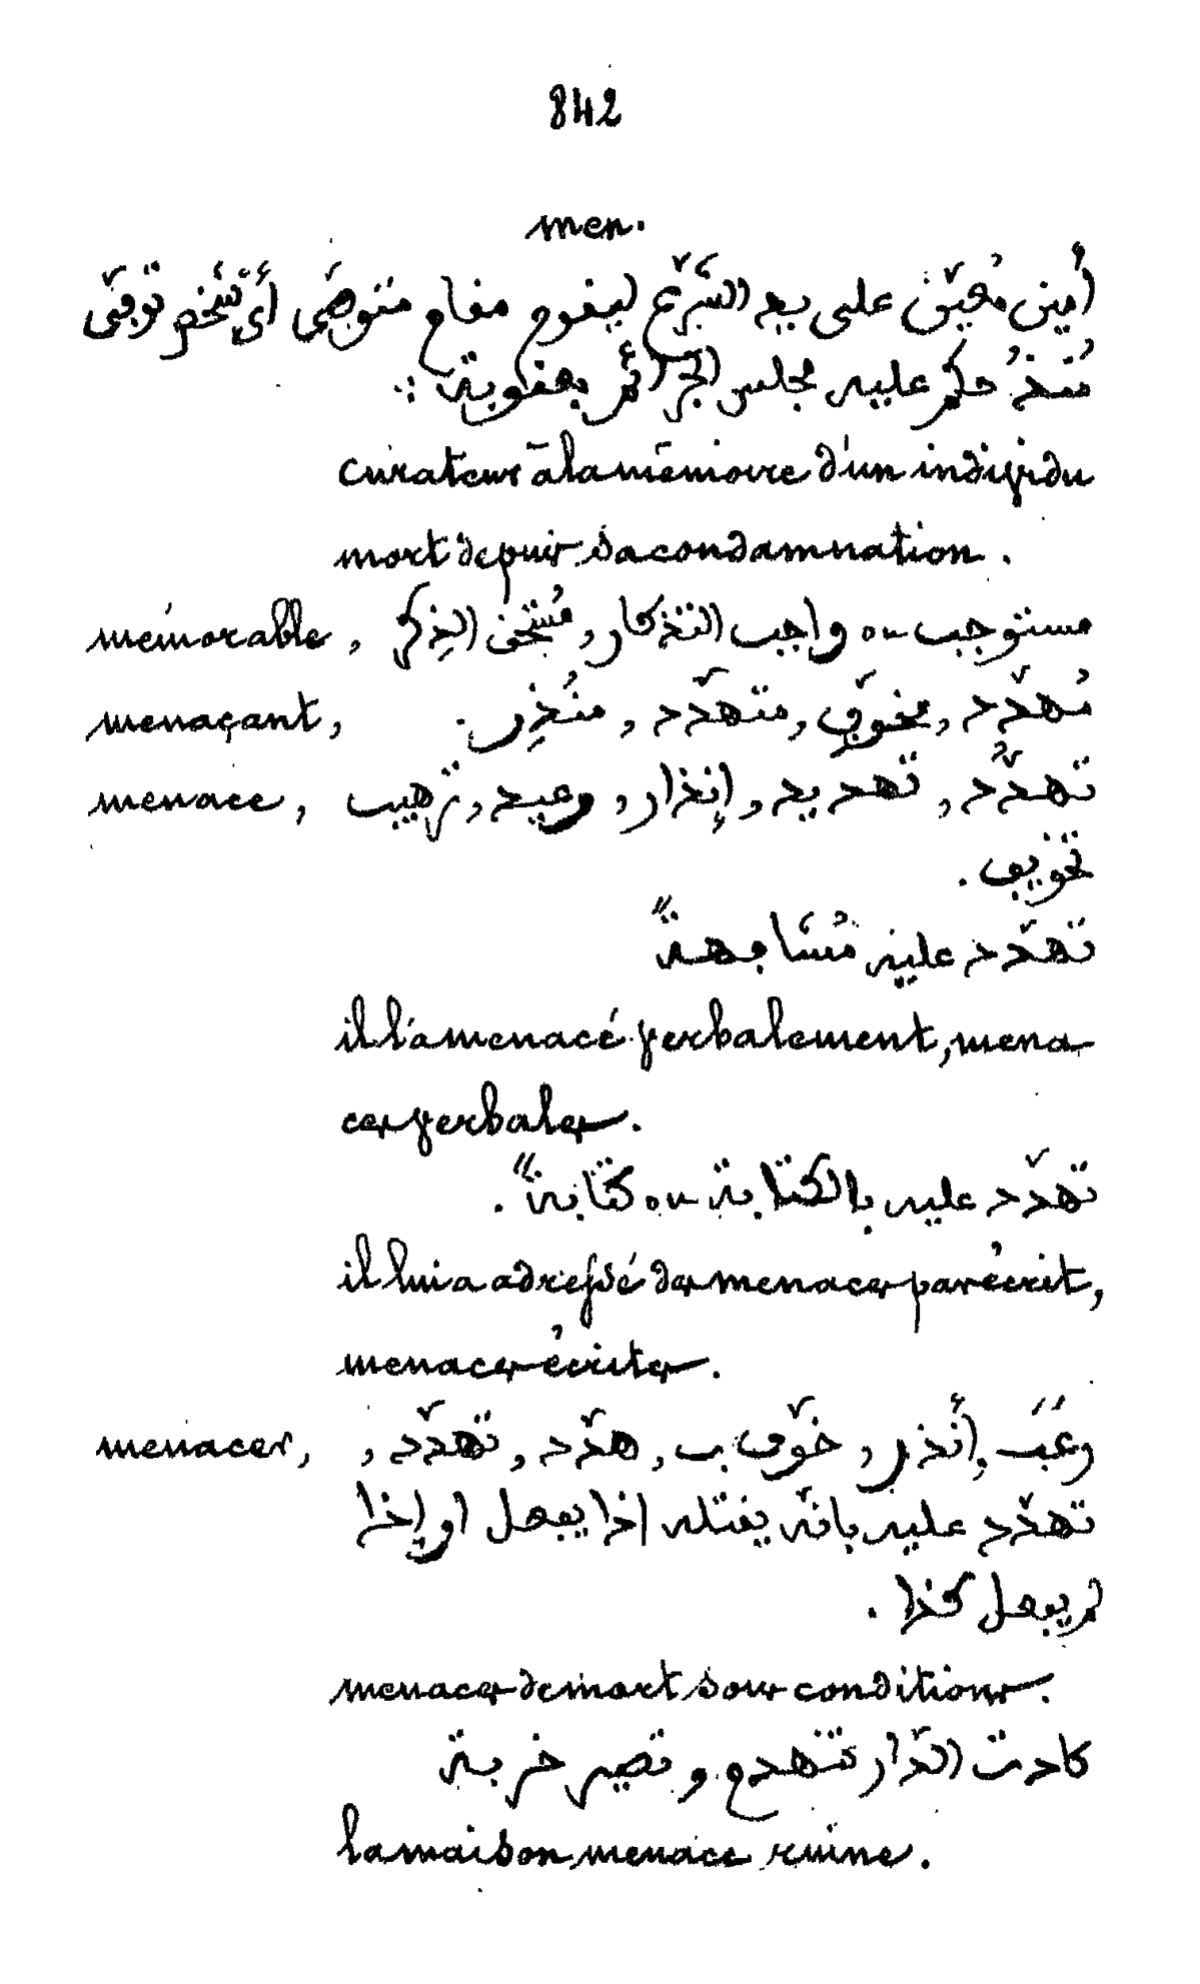 842
men.
أمين مُعيَّن على يد الشَّرع ليقوم مقام متوفّى أي شخص توفّى
مُنذُ حكم عليه مجلس الجرائم بعقوبة
curateur à la mémoire d'un individu
mort depuis sa condamnation.
mémorable, مستوجب ou واجب التذكار, مُستحق الذِكر
menaçant, مُهدِّد, مخوِّف, متهدِّد, منُذِر.
menace, تهدُّد, تهديد, إنذار, وعيد, ترهيب
تخويف.
تهدّد عليه مُشَافهةً
il l'a menacé verbalement, mena-
ces verbales.
تهدّد عليه بالكتابة ou كتابةً.
il lui a adressé des menaces par écrit,
menaces écrites.
menacer, أنذر, خوّف ب, هدّد, تهدّد,
تهدّد عليه بانّه يقتله اذا يفعل او إذا
لم يفعل كذا.
menaces de mort sous conditions.
كادت الدّار تتهدم و تصير خربة
la maison menace ruine.